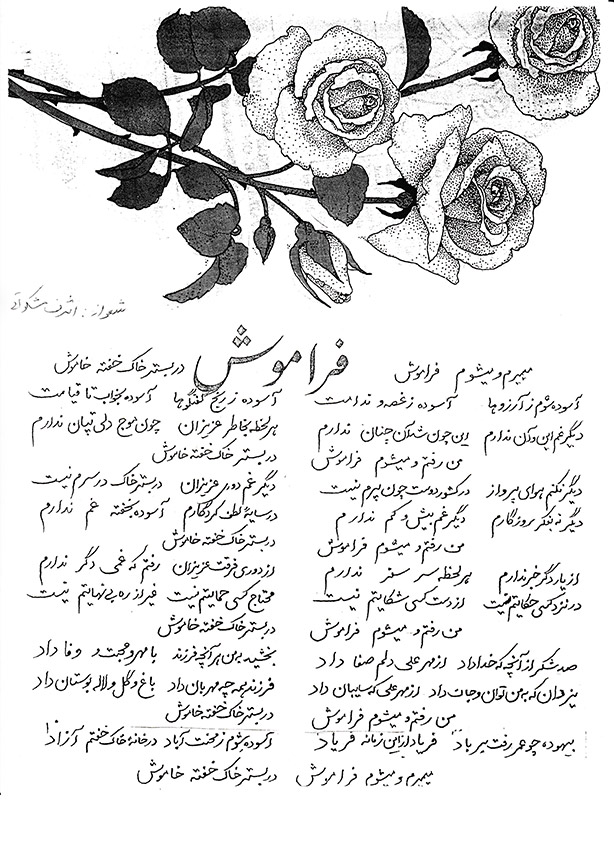 شعر از : اشرف مشکوتی
فراموش
میمیرم و میشوم فراموش در بستر خاک خفته خاموش
آسوده شوم ز آرزوها آسوده ز غصه و ندامت آسوده ز رنج گفتگوها آسوده بخواب تا قیامت
دیگر غم این و آن ندارم این چون شد آن چنان ندارم هر لحظه بخاطر عزیزان چون موج دلی تپان ندارم
من رفتم و میشوم فراموش در بستر خاک خفته خاموش
دیگر نکنم هوای پرواز در کشور دوست چون پرم نیست دیگر غم دوری عزیزان در بستر خاک در سرم نیست
دیگر نه بفکر روزگارم دیگر غم بیش و کم ندارم در سایهٔ لطف کردگارم آسوده بخفته غم ندارم
من رفتم و میشوم فراموش در بستر خاک خفته خاموش
از یار دگر خبر ندارم هر لحظه سر سفر ندارم از دوری فرقت عزیزان رفتم که غمی دگر ندارم
در نزد کسی حکایتم نیست از دست کسی شکایتم نیست محتاج کسی حمایتم نیست غیر از ره بی نهایتم نیست
من رفتم و میشوم فراموش در بستر خاک خفته خاموش
صد شکر از آنچه که خدا داد از مهر علی دلم صفا داد بخشید بمن هر آنچه فرزند با مهر و محبت و وفا داد
یزدان که بمن توان و جان داد از مهر علی که سایبان داد فرزند همه چه مهربان داد باغ و گل و لاله بوستان داد
من رفتم و میشوم فراموش در بستر خاک خفته خاموش
بیهوده چو عمر رفت بر باد فریاد از این زمانه فریاد آسوده شوم ز محنت آباد در خانهٔ خاک خفتم آزاد
میمیرم و میشوم فراموش در بستر خاک خفته خاموش